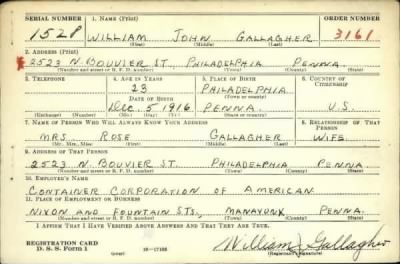 SERIAL NUMBER 1. NAME (Print) ORDER NUMBER
1528 WILLIAM JOHN GALLAGHER 3161
(First) (Middle) (Last)
2. ADDRESS (Print)
2523 N. BOUVIER ST. PHILADELPHIA PENNA.
(Number and street or R. F. D. number) (Town) (County) (State)
3. TELEPHONE 4. AGE IN YEARS 5. PLACE OF BIRTH 6. COUNTRY OF CITIZENSHIP
23 PHILADELPHIA
(Town or county)
DATE OF BIRTH
DEC. 5 1916 PENNA. U.S.
(Exchange) (No.) (Mo.) (Day) (Yr.) (State or country)
7. NAME OF PERSON WHO WILL ALWAYS KNOW YOUR ADDRESS 8. RELATIONSHIP OF THAT PERSON
MRS. ROSE GALLAGHER WIFE
(Mr., Mrs., Miss) (First) (Middle) (Last)
9. ADDRESS OF THAT PERSON
2523 N. BOUVIER ST. PHILADELPHIA PENNA
(Number and street or R. F. D. number) (Town) (County) (State)
10. EMPLOYER'S NAME
CONTAINER CORPORATION OF AMERICAN
11. PLACE OF EMPLOYMENT OR BUSINESS
NIXON AND FOUNTAIN STS., MANAYONK PENNA.
(Number and street or R. F. D. number) (Town) (County) (State)
I AFFIRM THAT I HAVE VERIFIED ABOVE ANSWERS AND THAT THEY ARE TRUE.
REGISTRATION CARD
D. S. S. Form 1 (over) 16-17105 William J Gallagher
(Registrant's signature)